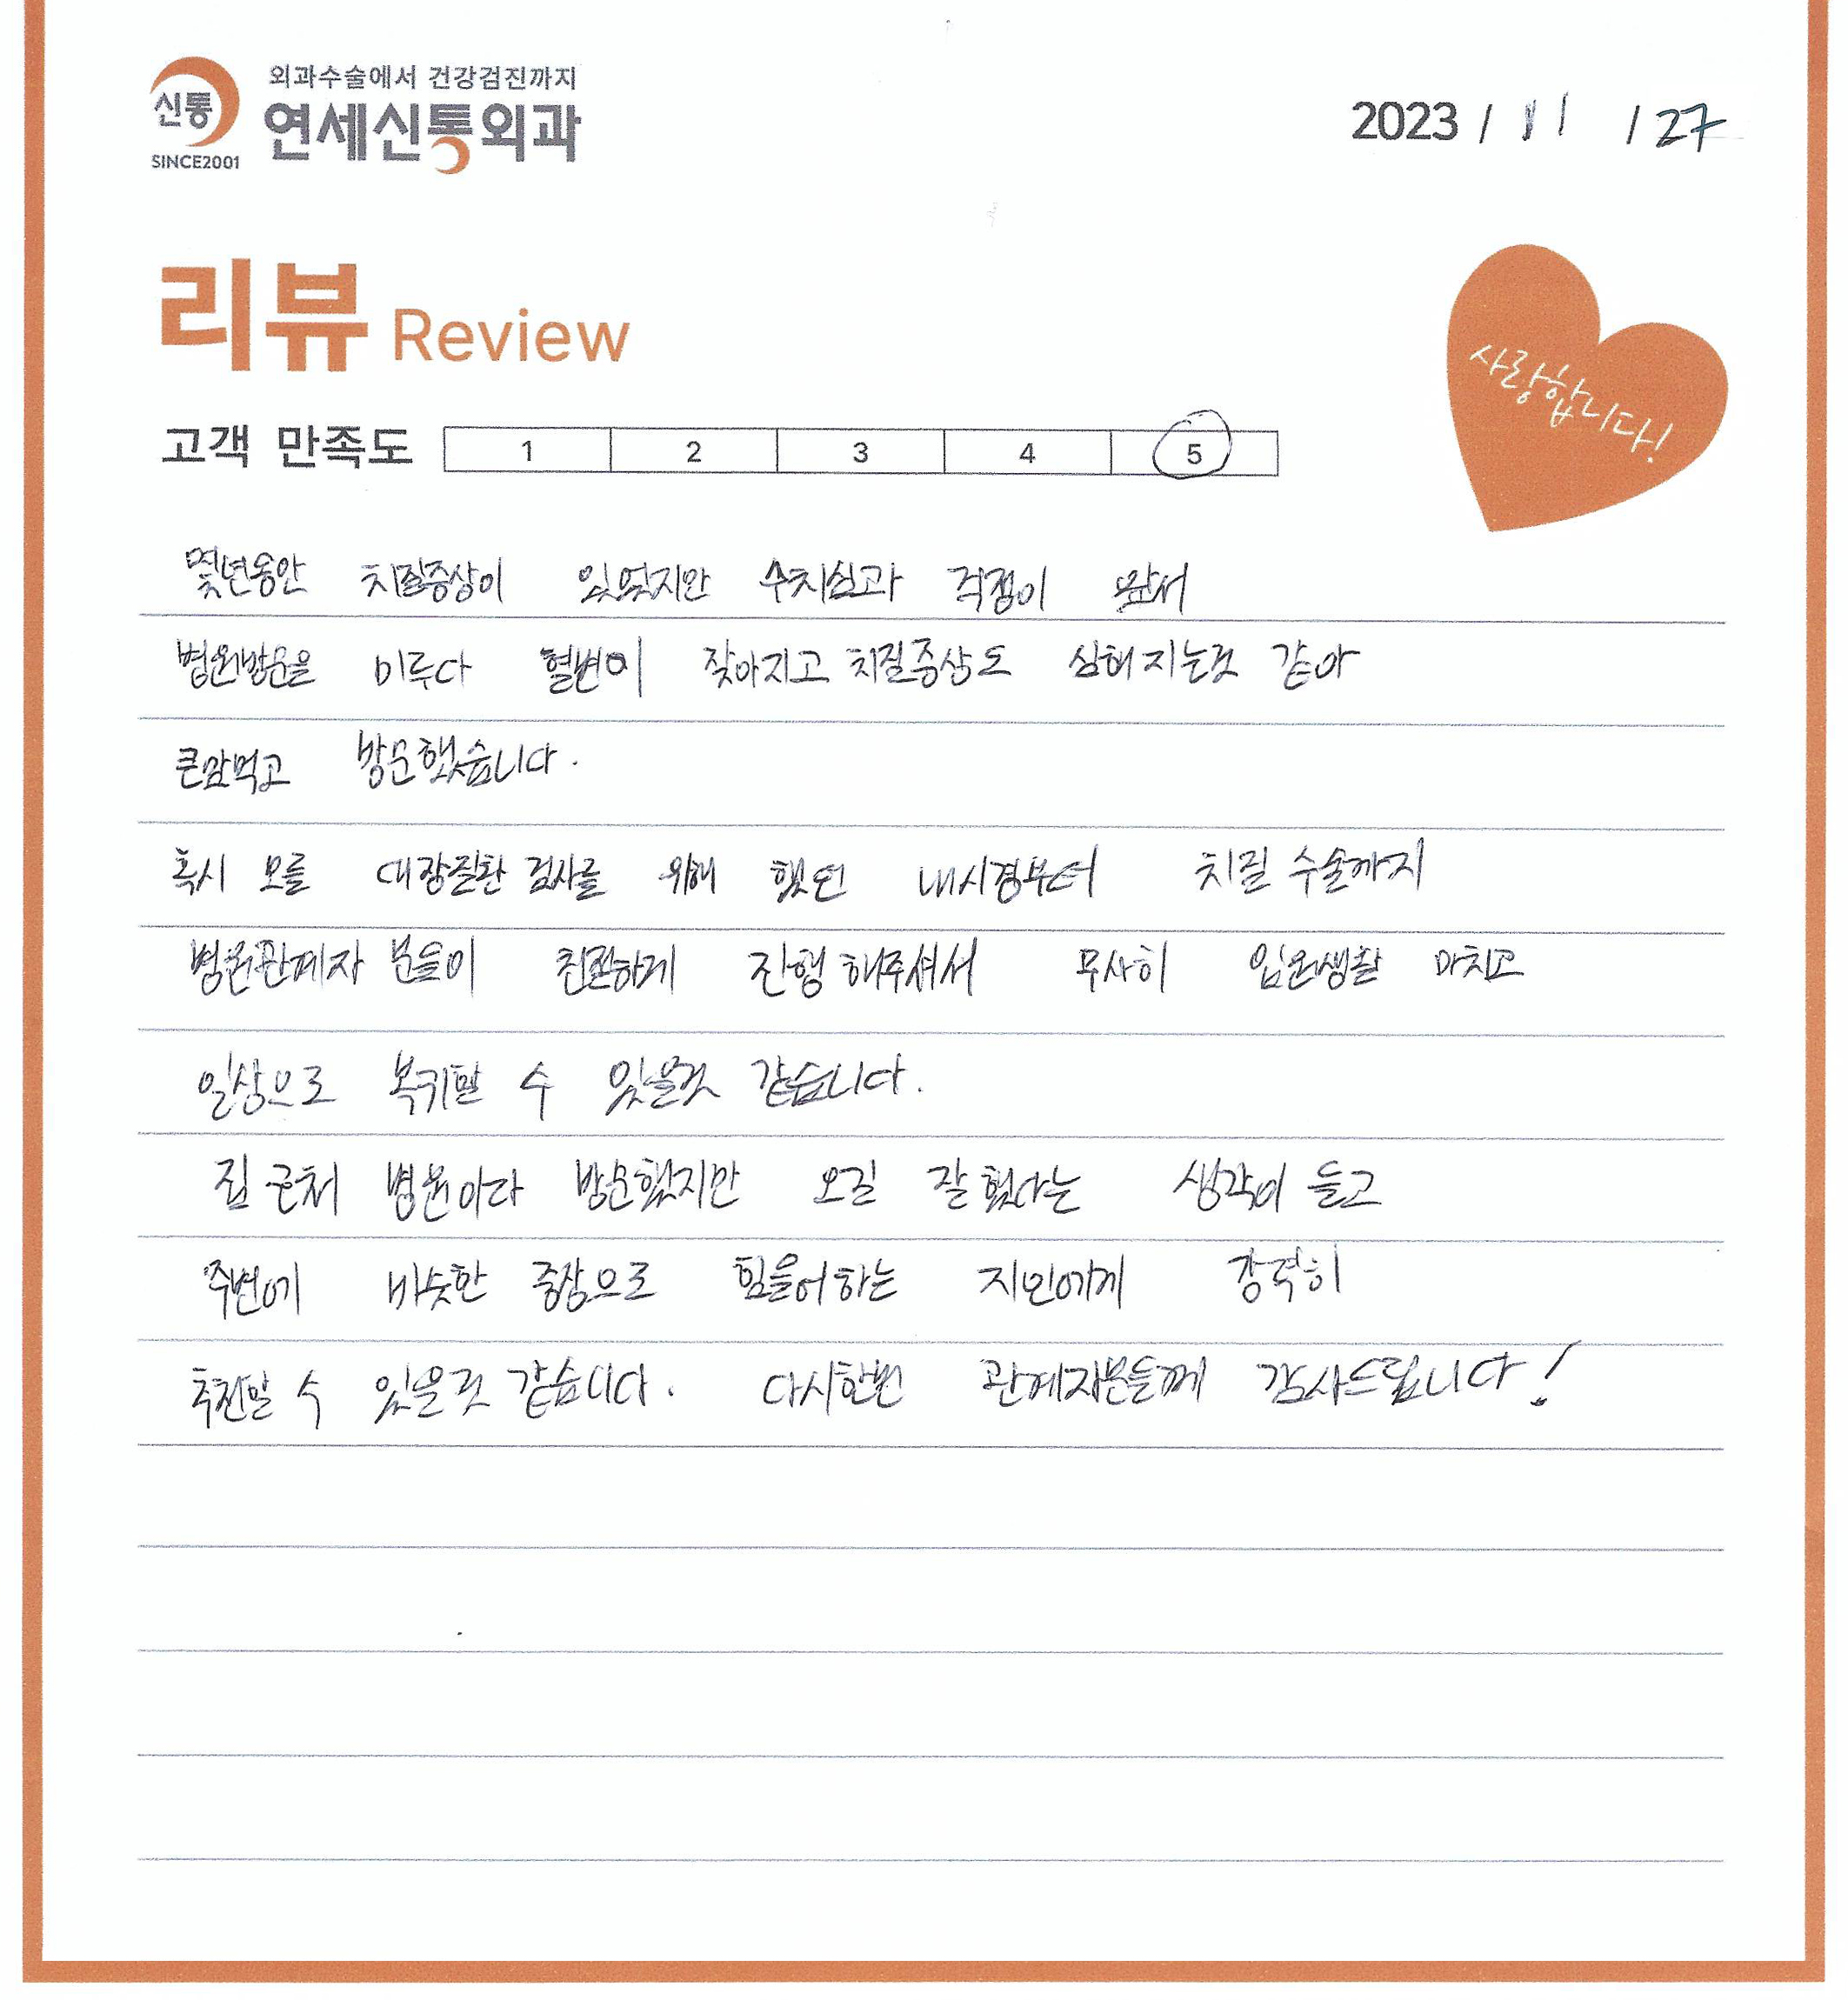 신통
SINCE2001
외과수술에서 건강검진까지
연세신통외과
2023 / 11 / 27
리뷰 Review
사랑합니다!
고객 만족도 1 2 3 4 5
몇년동안 치질증상이 있었지만 수치심과 걱정이 앞서
병원방문을 미루다 혈변이 잦아지고 치질증상도 심해지는것 같아
큰맘먹고 방문했습니다.
혹시 모를 대장질환 검사를 위해 했던 내시경부터 치질 수술까지
병원관계자 분들이 친절하게 진행해주셔서 무사히 입원생활 마치고
일상으로 복귀할 수 있을것 같습니다.
집 근처 병원이다 방문했지만 오길 잘 했다는 생각이 들고
주변에 비슷한 증상으로 힘들어하는 지인에게 강력히
추천할 수 있을것 같습니다. 다시한번 관계자분들께 감사드립니다!